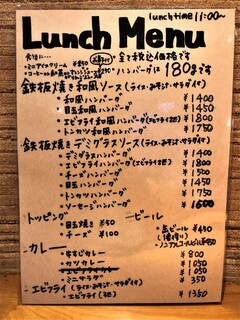 lunchtime 11:00〜
Lunch Menu
食後に…
・ミニアイスクリーム ¥250
全て税込価格です
ハンバーグは180gです
鉄板焼き和風ソース(ライス・みそ汁・サラダ付)
・和風ハンバーグ ¥1400
・目玉和風ハンバーグ ¥1450
・エビフライ和風ハンバーグ(エビフライ2匹) ¥1800
・トンカツ和風ハンバーグ ¥1750
鉄板焼きデミグラスソース(ライス・みそ汁・サラダ付)
・デミグラスハンバーグ ¥1400
・エビフライハンバーグ(エビフライ2匹) ¥1800
・チーズハンバーグ ¥1500
・目玉ハンバーグ ¥1450
・トンカツハンバーグ ¥1750
・ソーセージハンバーグ ¥1600
トッピング
・目玉焼き ¥50
・チーズ ¥100
ビール
・缶ビール ¥450
・ノンアルコールビール ¥450
カレー
・牛すじカレー ¥800
・カツカレー ¥1050
・エビフライカレー ¥1050
・ミニサラダ ¥350
・エビフライ(ライス・みそ汁・サラダ付)
・エビフライ(3匹) ¥1350